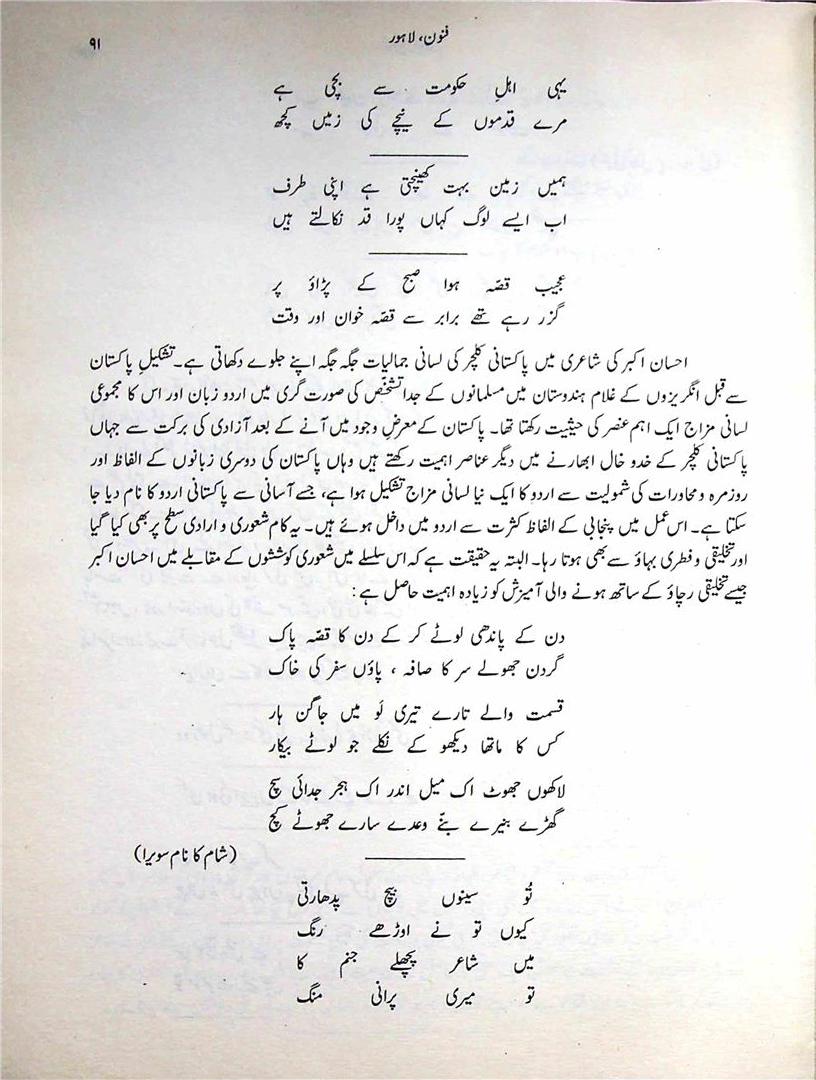 فنون، لاہور
۹۱
یہی اہلِ حکومت سے بچی ہے
مرے قدموں کے نیچے کی زمیں کچھ
ہمیں زمین بہت کھینچتی ہے اپنی طرف
اب ایسے لوگ کہاں پورا قد نکالتے ہیں
عجیب قصّہ ہوا صبح کے پڑاؤ پر
گزر رہے تھے برابر سے قصّہ خوان اور وقت
احسان اکبر کی شاعری میں پاکستانی کلچر کی لسانی جمالیات جگہ جگہ اپنے جلوے دکھاتی ہے۔ تشکیلِ پاکستان
سے قبل انگریزوں کے غلام ہندوستان میں مسلمانوں کے جدا تشخّص کی صورت گری میں اردو زبان اور اس کا مجموعی
لسانی مزاج ایک اہم عنصر کی حیثیت رکھتا تھا۔ پاکستان کے معرضِ وجود میں آنے کے بعد آزادی کی برکت سے جہاں
پاکستانی کلچر کے خدو خال ابھارنے میں دیگر عناصر اہمیت رکھتے ہیں وہاں پاکستان کی دوسری زبانوں کے الفاظ اور
روزمرہ و محاورات کی شمولیت سے اردو کا ایک نیا لسانی مزاج تشکیل ہوا ہے، جسے آسانی سے پاکستانی اردو کا نام دیا جا
سکتا ہے۔ اس عمل میں پنجابی کے الفاظ کثرت سے اردو میں داخل ہوئے ہیں۔ یہ کام شعوری و ارادی سطح پر بھی کیا گیا
اور تخلیقی و فطری بہاؤ سے بھی ہوتا رہا۔ البتہ یہ حقیقت ہے کہ اس سلسلے میں شعوری کوششوں کے مقابلے میں احسان اکبر
جیسے تخلیقی رچاؤ کے ساتھ ہونے والی آمیزش کو زیادہ اہمیت حاصل ہے:
دن کے پاندھی لوٹے کر کے دن کا قصّہ پاک
گردن جھولے سر کا صافہ ، پاؤں سفر کی خاک
قسمت والے تارے تیری لَو میں جاگن ہار
کس کا ماتھا دیکھو کے نکلے جو لوٹے بیکار
لاکھوں جھوٹ اک میل اندر اک ہجر جدائی سچ
گھڑے بنیرے بنّے وعدے سارے جھوٹے کچ
(شام کا نام سویرا)
تُو سینوں بیچ پدھارتی
کیوں تو نے اوڑھے رنگ
میں شاعر پچھلے جنم کا
تو میری پرانی منگ